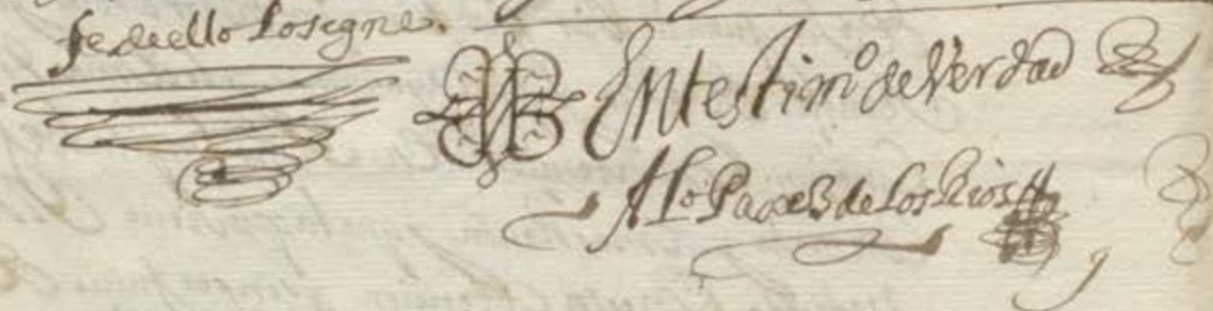 fe deello lo segne.
En testimº de Verdad
Alº Paez de los Rios